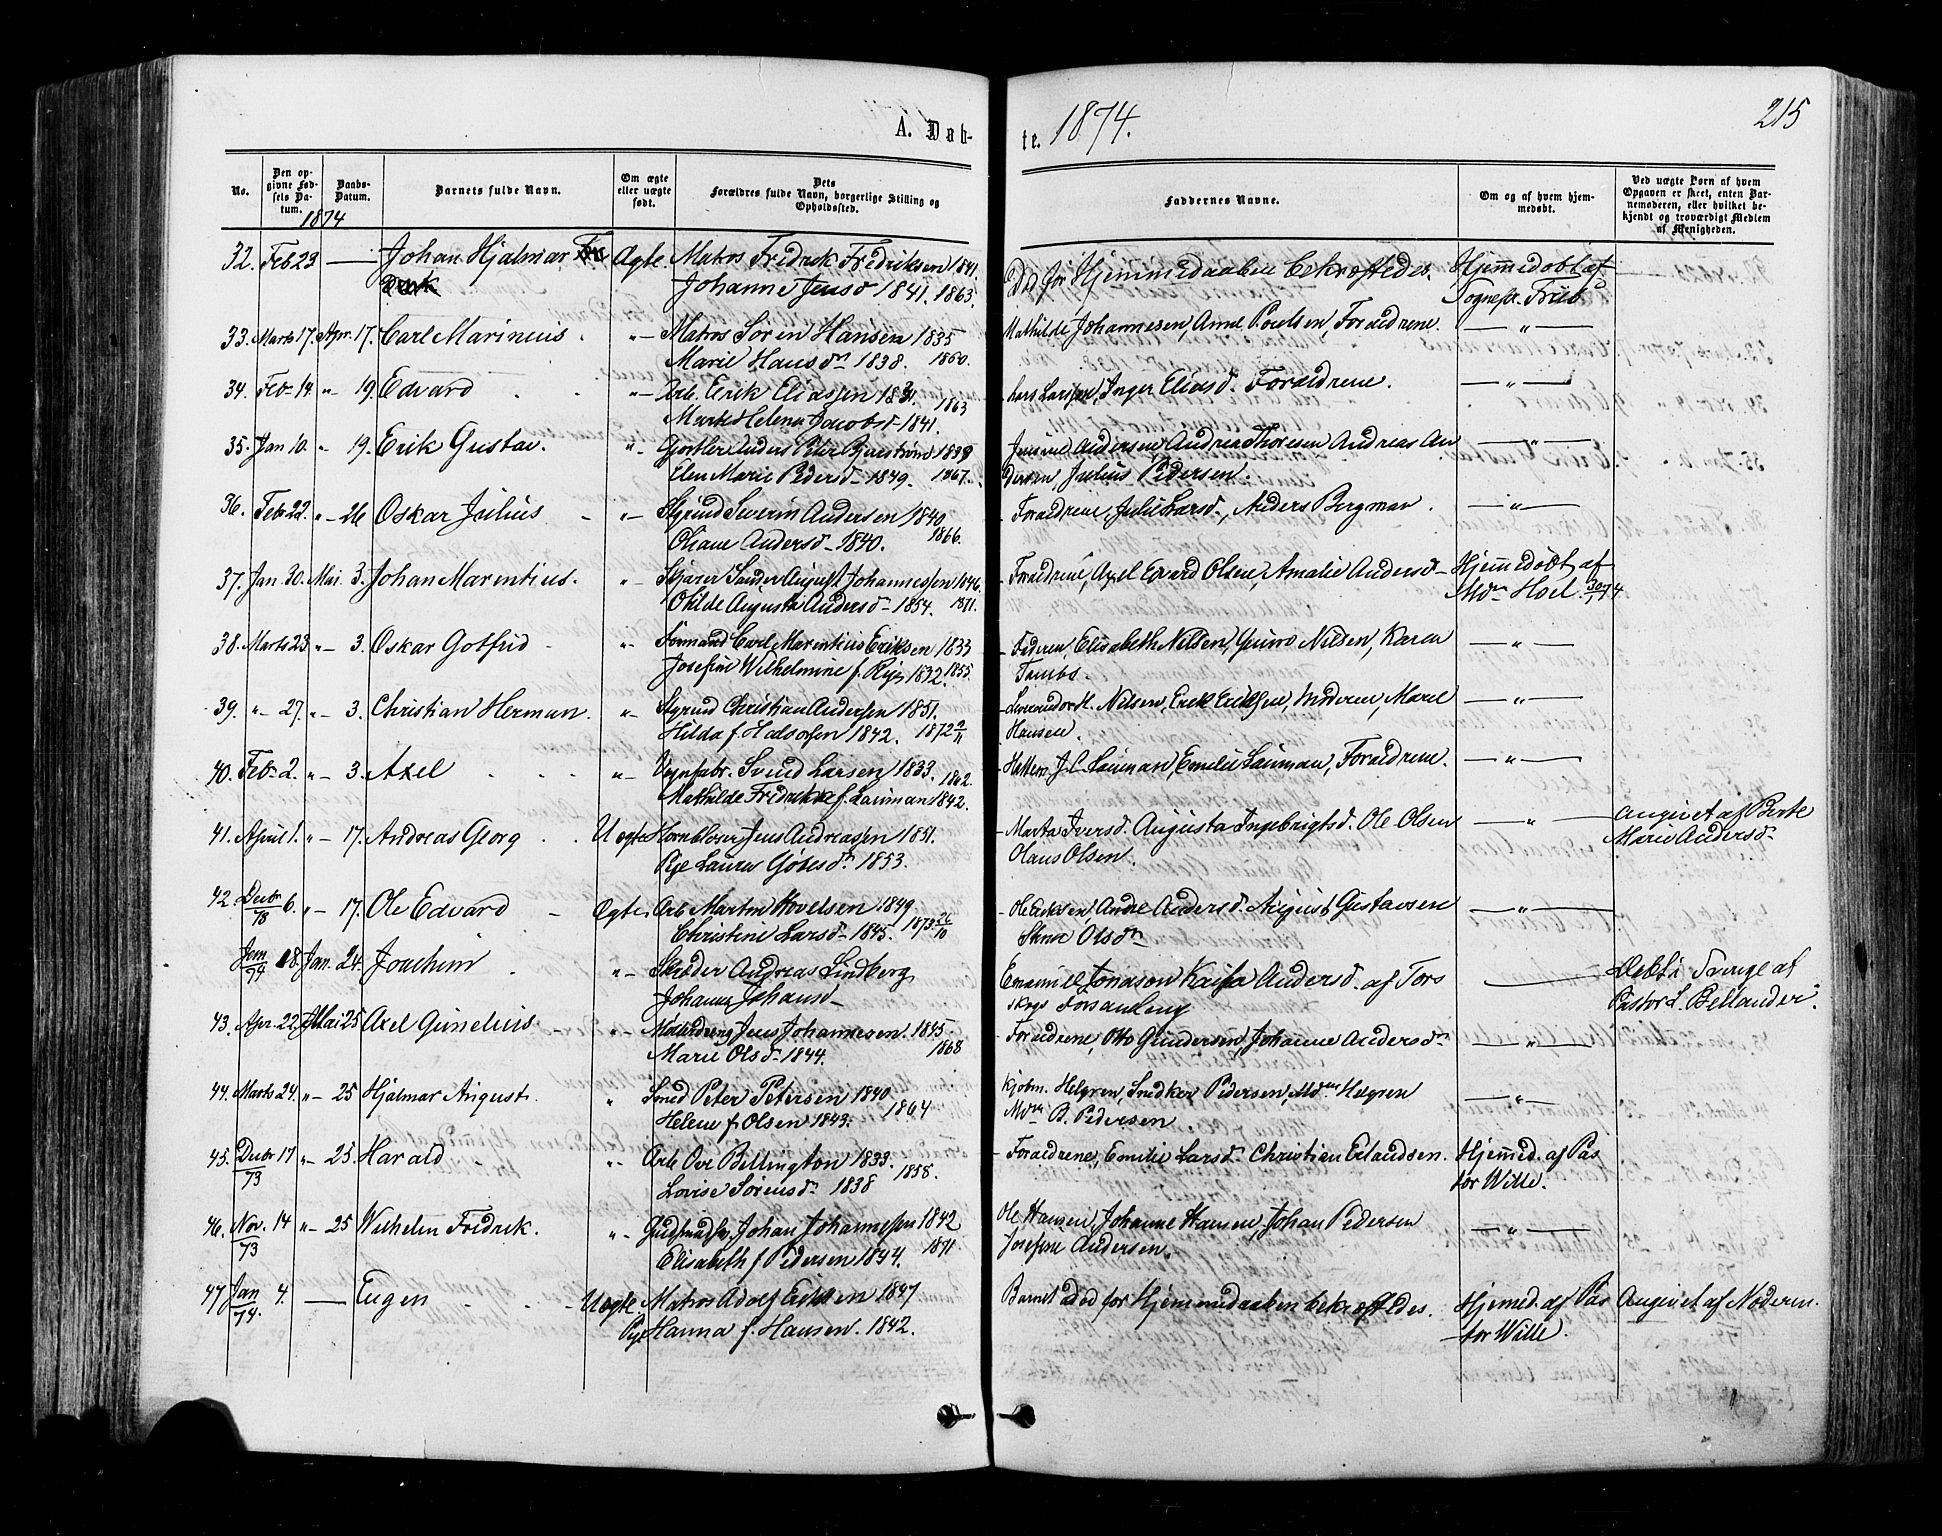 A. Døb-
te. 1874.
215
No.
Den op-
givne Fød-
sels Da-
tum.
Daabs-
Datum.
Barnets fulde Navn.
Om ægte
eller uægte
født.
Dets
Forældres fulde Navn, borgerlige Stilling og
Opholdssted.
Faddernes Navne.
Om og af hvem hjem-
medøbt.
Ved uægte Børn af hvem
Opgaven er skeet, enten Bar-
nemoderen, eller hvilket be-
kjendt og troværdigt Medlem
af Menigheden.
1874
32. Feb 23 — Johan Hjalmar Ægte. Matros Fredrik Fredriksen 1841.
Johanne Jensd 1841. 1863.
Død før Hjemmedaaben bekræftedes. Hjemmedøbt af
Sognepr. Friis
33. Marts 17. Apr. 17. Carl Marinius. "- Matros Søren Hansen 1835
Marie Hansdn 1838. 1860.
Mathilde Johannesen, Anne Poulsen, Forældrene. — " —
34. Feb 14. "- 19. Edvard "- Arb. Erik Eliassen 1831. 1863
Marte Helene Jacobsd 1841.
Lars Larsen, Inger Eliasd. Forældrene. — " —
35. Jan 10. "- 19. Erik Gustav. "- Gjørtler Anders Peter 1838
Elen Marie Pedersd- 1849. 1867.
Andersen, Andrea Thoresen Andreas An
dersen, Julius Pedersen. — " —
36. Febr 22. "- 26 Oskar Julius - "- Severin Andersen 1840
Oliane Andersd- 1840. 1866.
Forældrene, Julie Larsd-, Anders Bergman. — " —
37. Jan. 30. Mai. 3. Johan Marentius. "- August Johannessen 1846.
Otilde Augusta Andersd- 1854. 1871.
Forældrene, Axel Edvard Olsen, Amalie Andersd- Hjemmedøbt af
Mdm Hoel
38. Marts 23 "- 3. Oskar Gotfrid - "- Formand Carl Marentius Eriksen 1833
Josefine Wilhelmine f. 1832. 1855.
Faderen, Elisabeth Nilsen, Nilsen, Karen
Tambs. — " —
39. "- 27. "- 3. Christian Herman. "- Christian Andersen 1851.
Hilda f. Halvorsen 1842. 1872
Nilsen, Erik Eriksen, Moderen, Marie
Hansen. — " —
40. Feb- 2. "- 3. Axel "- Vognfabr. Svend Larsen 1833. 1862.
Mathilde Fredrikke f. Lauman 1842.
J. C. Lauman, Emilie Lauman, Forældrene. — " —
41. April 1. "- 17. Andreas Georg Uægte Hornblæser Jens Andreassen 1851.
Pige Laura 1853.
Marta Iversd. Augusta Ingebrigtsd. Ole Olsen
Olaus Olsen. — " — Angivet af Berte
Marie Andersd-
42. Decbr/73 6. "- 17. Ole Edvard - Ægte. Arb Martin Hovelsen 1849
Christine Larsd- 1845. 1873 26/10
Ole Eriksen, Andersd. August Gustavsen
Olsdn — " —
Jan/74 18. Jan. 24. Joachim "- Skræder Andreas Lindberg
Johanna Johansd-
Emanuel Jonason Kaisa Andersd. af Tors
skogs Forsamling — Døbt i Sverige af
Pastor L. Bellander.
43. Apr. 22. Mai 25 Axel - "- Jens Johannesen. 1845.
Marie Olsd- 1844. 1868
Forældrene, Otto Gundersen, Johanne Andersd- — " —
44. Marts 24. "- 25 Hjalmar August. " Smed Peter Petersen 1840
Helene f. Olsen 1843. 1864
Kjøbm. Helgren, Snedker Pedersen, Mdm Helgren
Mdm B. Pedersen — " —
45. Decbr 17/73 "- 25. Harald "- Arb Ove Bellington 1833.
Lovise Sørensdn 1838 1858.
Forældrene, Emilie Larsd- Christian Erlandsen. Hjemmed. af Pas
tor Wille.
46. Nov. 14/73 "- 25 Wilhelm Fredrik. "- Johan Johannessen 1842
Elisabeth f. Pedersen 1844. 1871
Ole Hansen, Johanne Hansen, Johan Pedersen
Josefine Andersen. — " —
47 Jan/74. 4. — Eugen - Uægte Matros Adolf Eriksen 1847
Pige Hanna f. Hansen. 1842.
Barnet død før Hjemmedaaben bekræftedes. Hjemmed. af Pas
tor Wille. Angivet af Moderen.